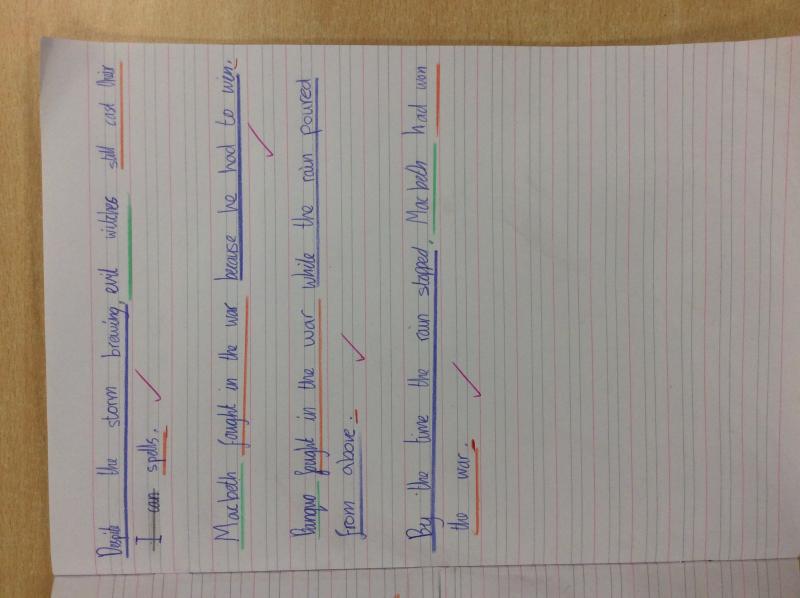 Despite the storm brewing, evil witches still cast their
I can spells.
Macbeth fought in the war because he had to win.
Banquo fought in the war while the rain poured
from above.
By the time the rain stopped, Macbeth had won
the war.